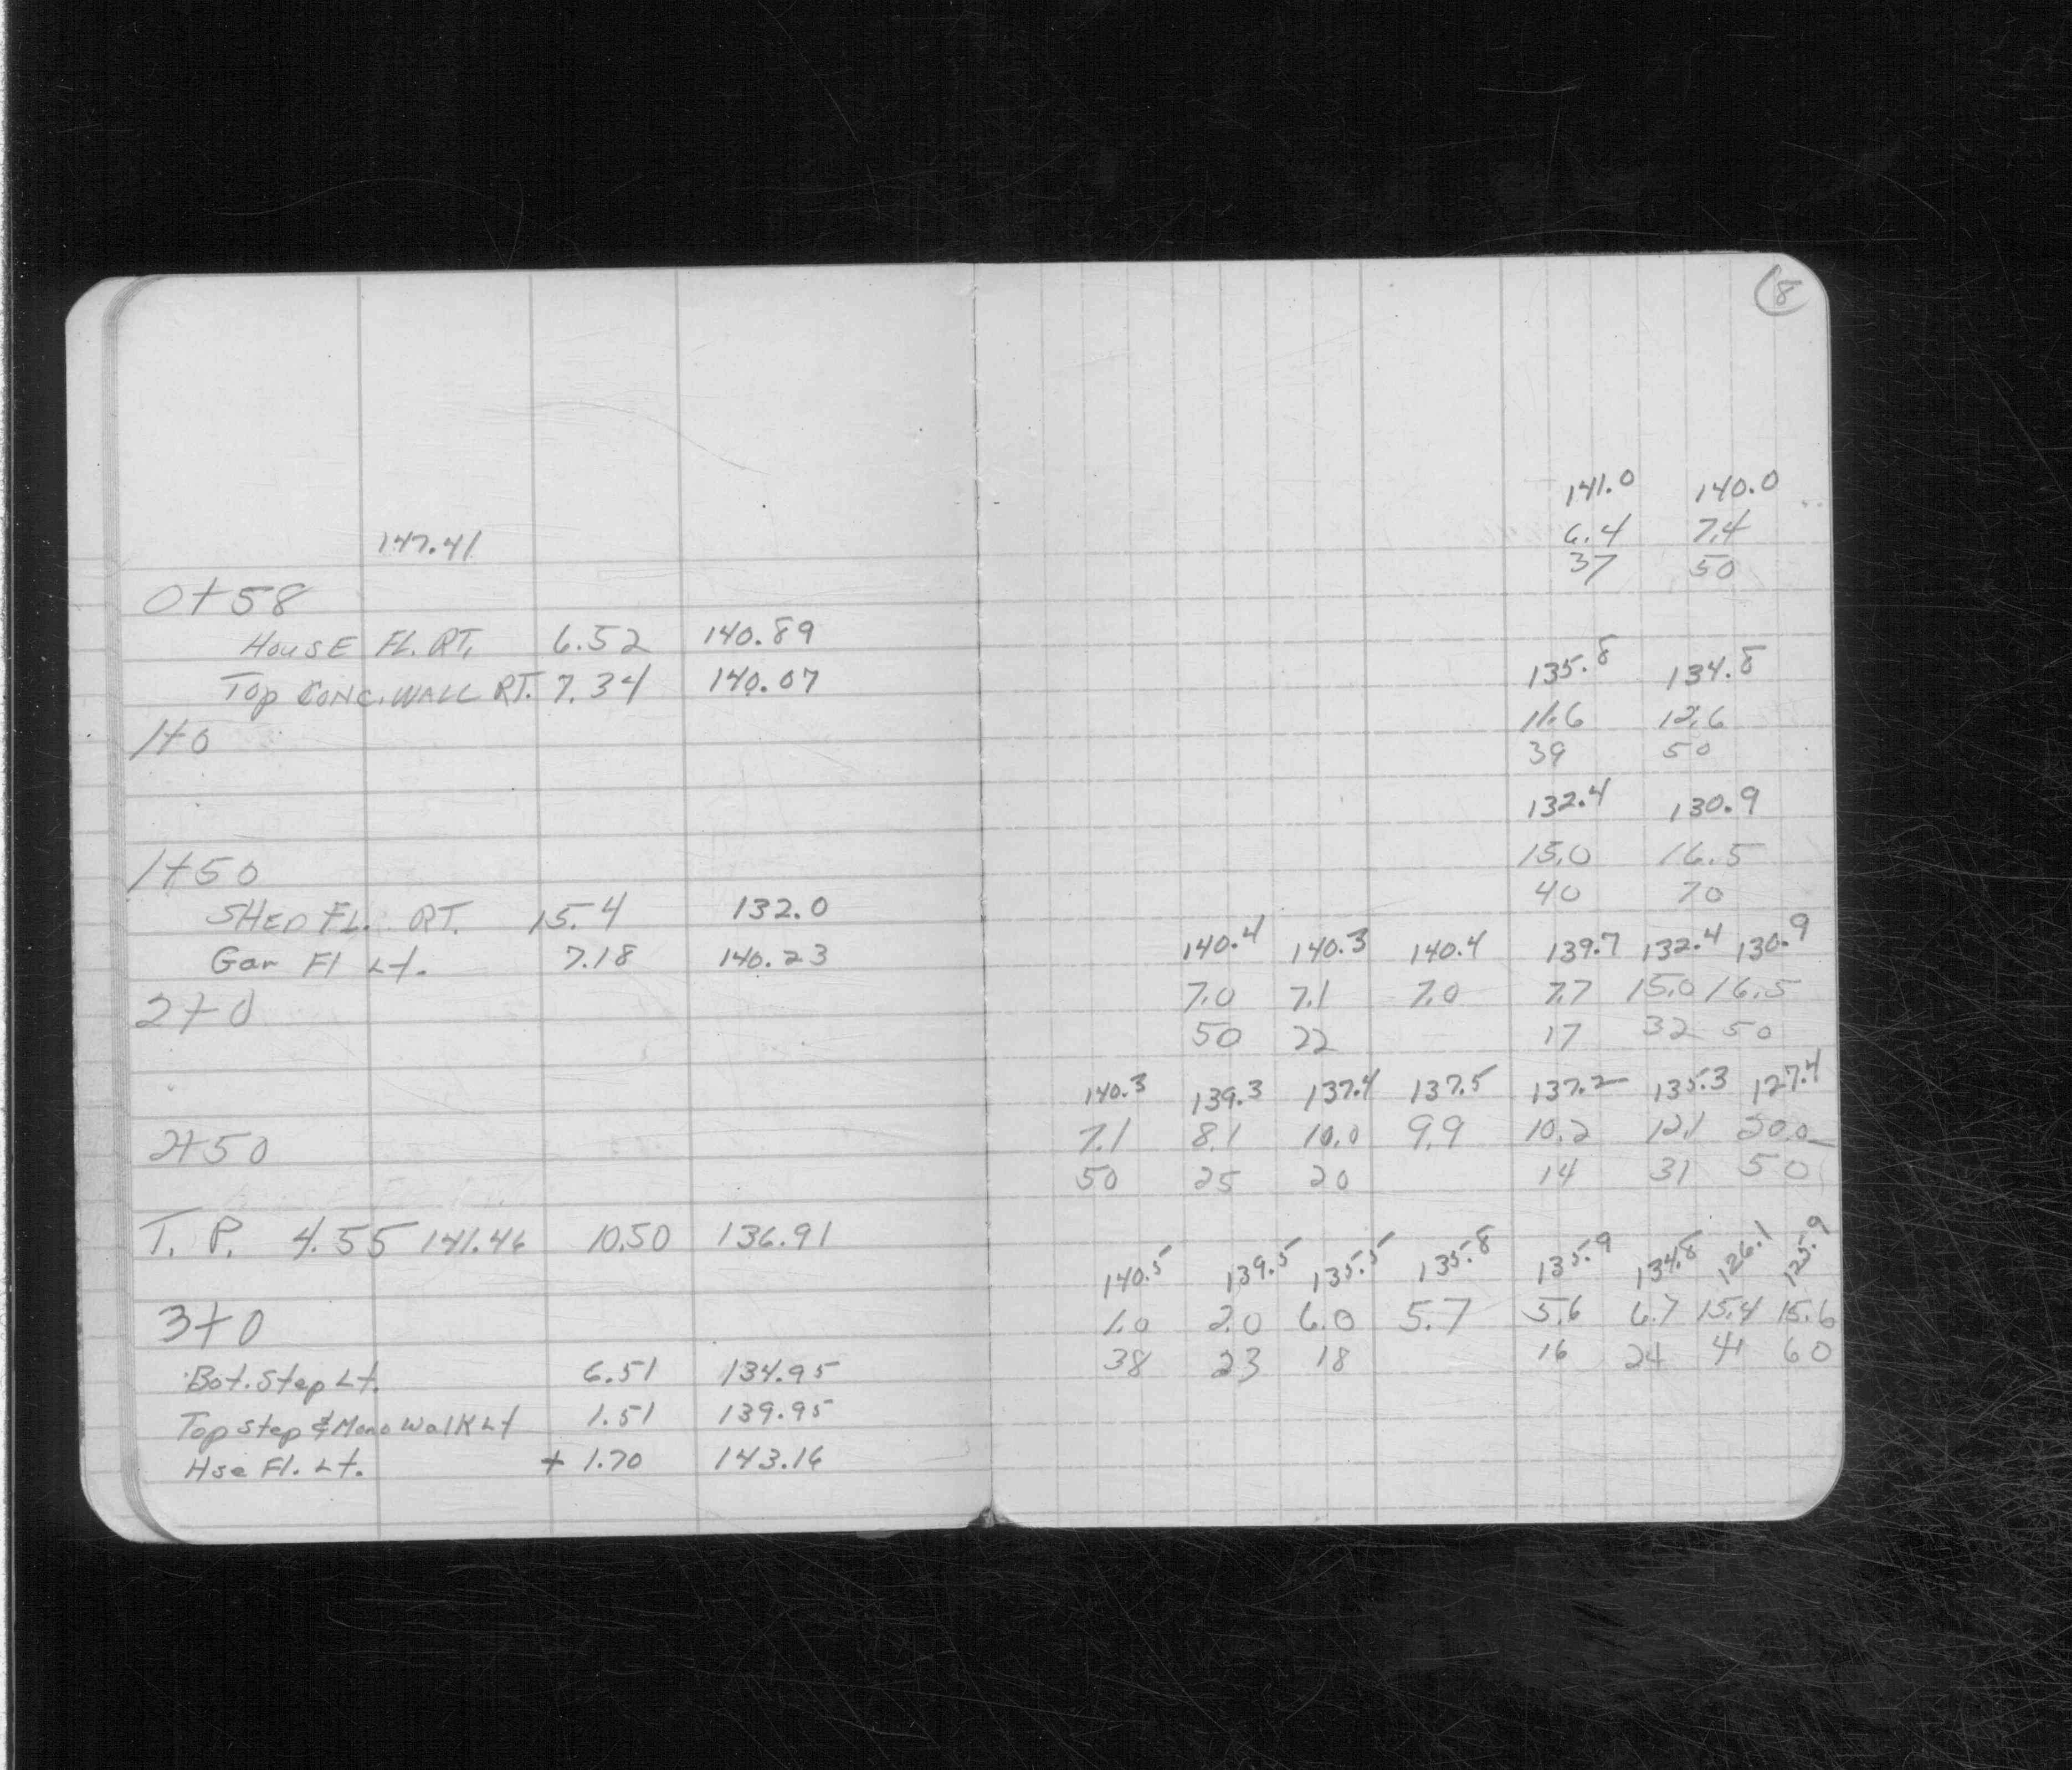 147.41
0+58
House Fl. Rt. 6.52 140.89
Top Conc. Wall Rt. 7.34 140.07
1+0
1+50
Shed Fl. Rt. 15.4 132.0
Gar Fl Lt. 7.18 140.23
2+0
2+50
T. P. 4.55 141.46 10.50 136.91
3+0
Bot. Step Lt. 6.51 134.95
Top Step & Mono Walk Lt 1.51 139.95
Hse Fl. Lt. + 1.70 143.16
8
141.0 140.0
6.4 7.4
37 50
135.8 134.8
11.6 12.6
39 50
132.4 130.9
15.0 16.5
40 70
140.4 140.3 140.4 139.7 132.4 130.9
7.0 7.1 7.0 7.7 15.0 16.5
50 22 17 32 50
140.3 139.3 137.4 137.5 137.2 135.3 127.4
7.1 8.1 10.0 9.9 10.2 12.1 20.0
50 25 20 14 31 50
140.5 139.5 135.5 135.8 135.9 134.8 126.1 125.9
1.0 2.0 6.0 5.7 5.6 6.7 15.4 15.6
38 23 18 16 24 41 60